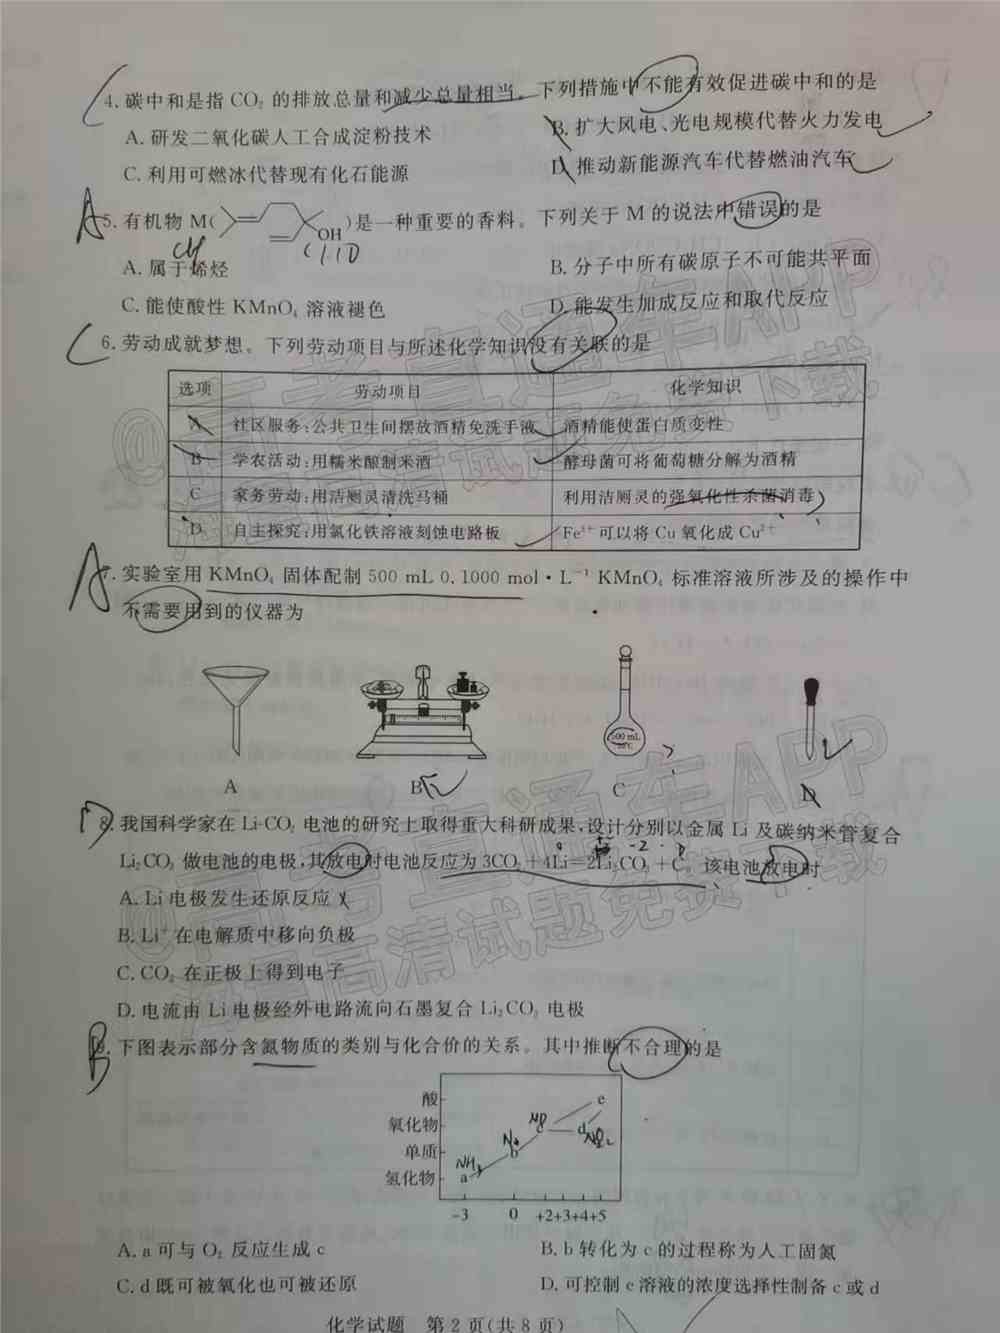 4.碳中和是指 CO₂ 的排放总量和减少总量相当。下列措施中不能有效促进碳中和的是
A.研发二氧化碳人工合成淀粉技术 B.扩大风电、光电规模代替火力发电
C.利用可燃冰代替现有化石能源 D.推动新能源汽车代替燃油汽车
A 5.有机物 M( OH )是一种重要的香料。下列关于 M 的说法中错误的是
A.属于烯烃 B.分子中所有碳原子不可能共平面
C.能使酸性 KMnO₄ 溶液褪色 D.能发生加成反应和取代反应
6.劳动成就梦想。下列劳动项目与所述化学知识没有关联的是
选项 劳动项目 化学知识
A 社区服务:公共卫生间摆放酒精免洗手液 酒精能使蛋白质变性
B 学农活动:用糯米酿制米酒 酵母菌可将葡萄糖分解为酒精
C 家务劳动:用洁厕灵清洗马桶 利用洁厕灵的强氧化性杀菌消毒
D 自主探究:用氯化铁溶液刻蚀电路板 Fe³⁺ 可以将 Cu 氧化成 Cu²⁺
A 7.实验室用 KMnO₄ 固体配制 500 mL 0.1000 mol·L⁻¹ KMnO₄ 标准溶液所涉及的操作中
不需要用到的仪器为
500 mL
20℃
A B C D
8.我国科学家在 Li-CO₂ 电池的研究上取得重大科研成果,设计分别以金属 Li 及碳纳米管复合
Li₂CO₃ 做电池的电极,其放电时电池反应为 3CO₂+4Li=2Li₂CO₃+C。该电池放电时
A.Li 电极发生还原反应
B.Li⁺ 在电解质中移向负极
C.CO₂ 在正极上得到电子
D.电流由 Li 电极经外电路流向石墨复合 Li₂CO₃ 电极
B 9.下图表示部分含氮物质的类别与化合价的关系。其中推断不合理的是
酸 e
氧化物 NO c d NO₂
单质 N₂ b
氢化物 NH₃ a
-3 0 +2+3+4+5
A.a 可与 O₂ 反应生成 c B.b 转化为 c 的过程称为人工固氮
C.d 既可被氧化也可被还原 D.可控制 e 溶液的浓度选择性制备 c 或 d
化学试题 第 2 页(共 8 页)
@高考直通车APP
海量高清试题免费下载
@高考直通车APP
海量高清试题免费下载